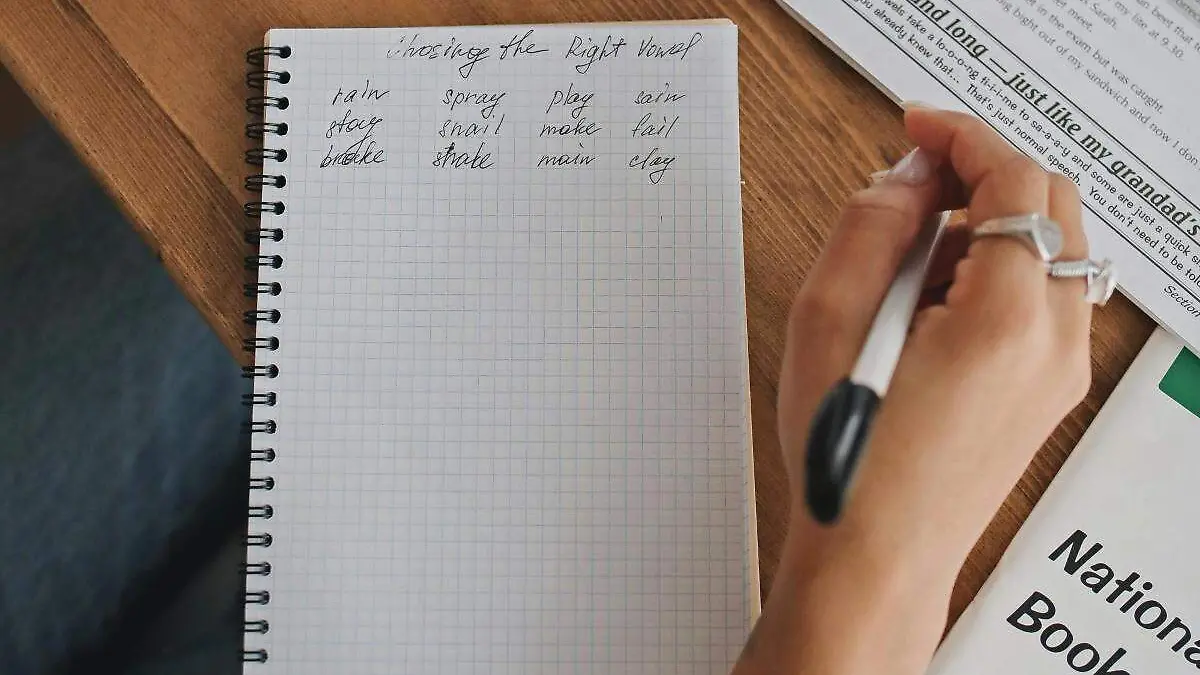 Chosing the Right Vowel
rain spray play sain
stay snail make fail
main clay
beet that
my life at 9.30.
meet Sarah.
in the exam but was caught.
bight out of my sandwich and now I
and long — just like my grandad's
take a lo-o-o-ng ti-i-i-me to sa-a-a-y and some are just a quick
already knew that... That's just normal speech. You don't need to be
Section
Nationa
Book